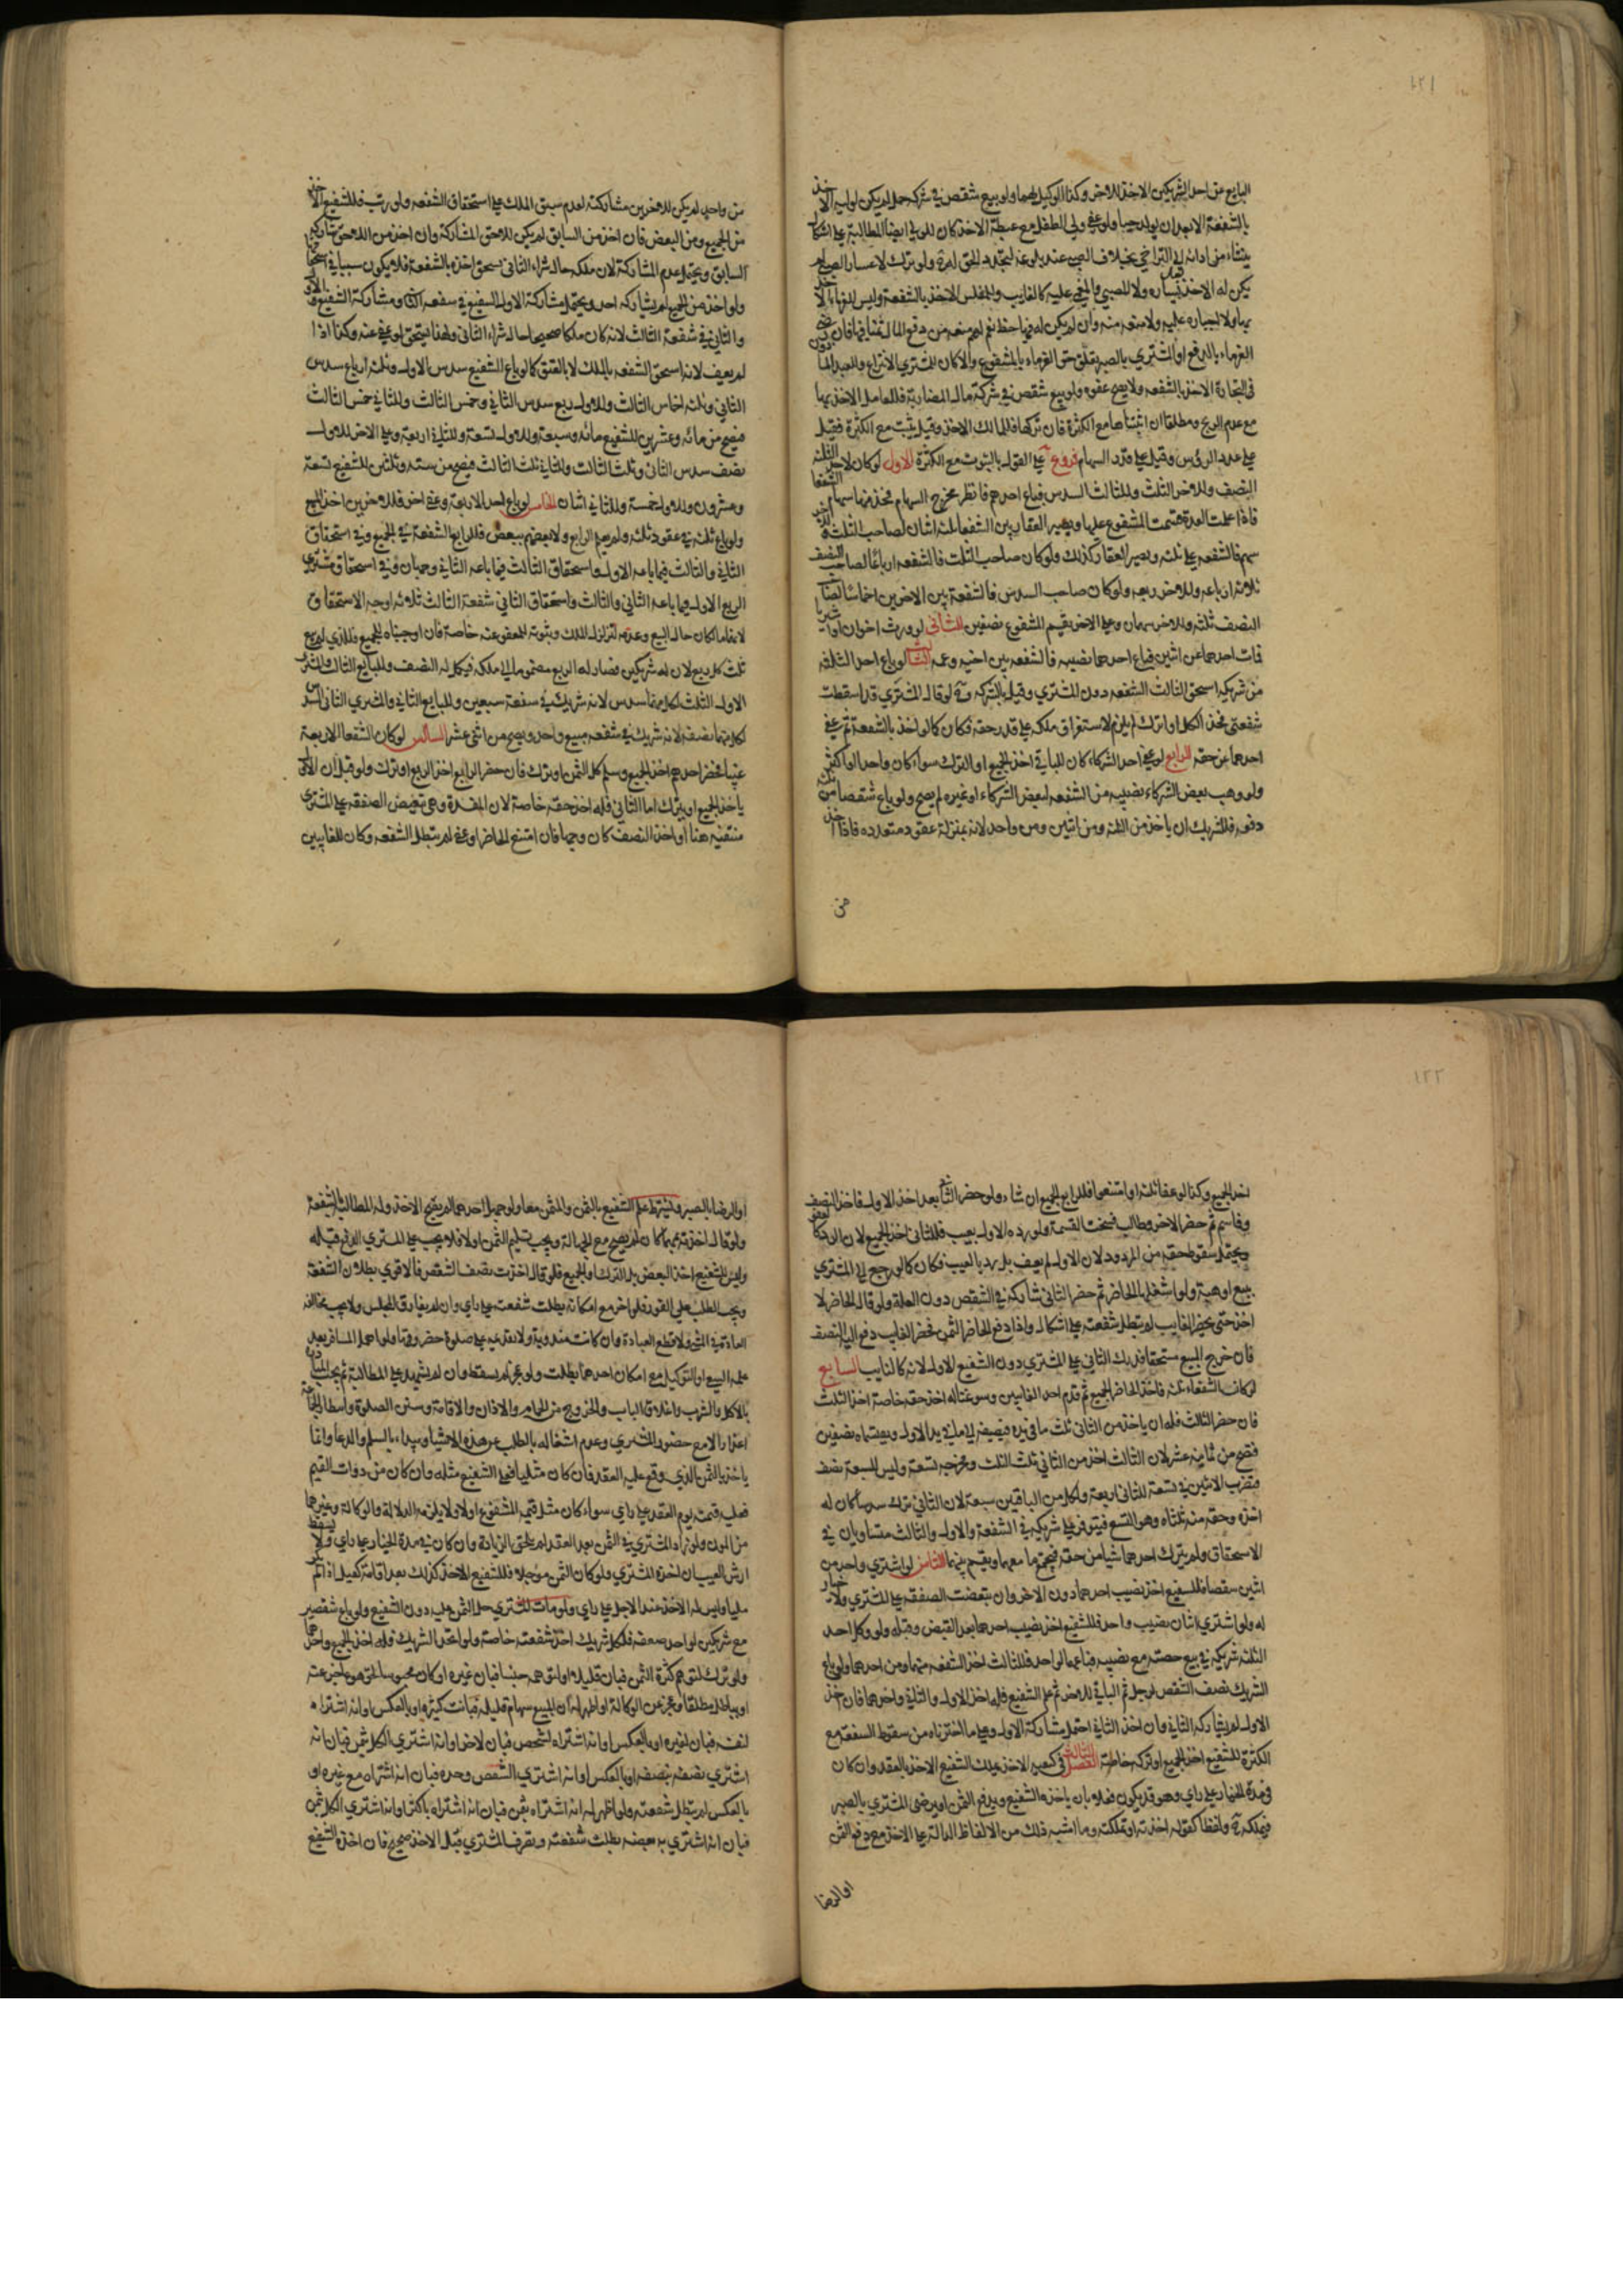 ١٢١
البايع عن احد الشريكين الاخذ للاخر وكذا الوكيل لهما ولو بيع شقص في شركة حمل لم يكن لوليه الاخذ
بالشفعة الا بعد ان يولد حيا ولو عفى ولي الطفل مع غبطة الاخذ كان للولي ايضا المطالبة على اشكال
ينشأ من ادائه الى التراخي بخلاف الصبي عند بلوغه لتجدد الحق له ولو ترك لاعسار الصبي لم
يكن له الاخذ بعد يساره ولا للصبي والمغمى عليه كالغايب وللمفلس الاخذ بالشفعة وليس للغرماء الاخذ
بها ولا اجباره عليه ولا منعه منه وان لم يكن له فيها حظ نعم لهم منعه من دفع المال ثمنا فيها فان رضي
الغرماء بالدفع او المشتري بالصبر تعلق حق الغرماء بالمشفوع والا كان للمشتري الانتزاع وللعبد الماذون
في التجارة الاخذ بالشفعة ولا يصح عفوه ولو بيع شقص في شركة مال المضاربة فللعامل الاخذ بها
مع عدم الربح ومطلقا ان اثبتناها مع الكثرة فان تركها فللمالك الاخذ وقيل يثبت مع الكثرة فقيل
على عدد الرؤس وقيل على قدر السهام فروع على القول بالثبوت مع الكثرة الاول لو كان لاحد الثلثة
النصف وللاخر الثلث وللثالث السدس فباع احدهم فانظر مخرج السهام فخذ منها سهام الشفعا
فاذا علمت العدة قسمت المشفوع عليها ويصير العقار بين الشفعا ثلثه اثنان لصاحب الثلث وللاخر
سهم فالشفعه على ثلثه ويصير العقار كذلك ولو كان صاحب الثلث فالشفعه ارباعا لصاحب النصف
ثلاثة ارباعه وللاخر ربعه ولو كان صاحب السدس فالشفعة بين الاخرين اخماسا لصاحب
النصف ثلثه وللاخر سهمان وعلى الاخر يقسم المشفوع نصفين الثاني لو ورث اخوان او اشتريا
فمات احدهما عن اثنين فباع احدهما نصيبه فالشفعه بين اخيه وعمه الثالث لو باع احد الثلثه
من شريكه استحق الثالث الشفعه دون المشتري وقيل بالشركه فلو قال المشتري قد اسقطت
شفعتي فخذ الكل او اترك لم يلزم لاستقرار ملكه على قدر حقه فكان كما لو اخذ بالشفعه ثم عفى
احدهما عن حقه الرابع لو عفى احد الشركاء كان للباقي اخذ الجميع او الترك سواء كان واحدا او اكثر
ولو وهب بعض الشركاء نصيبه من الشفعه لبعض الشركاء او غيره لم يصح ولو باع شقصا من ثلثه
دفعه فللشريك ان ياخذ من الثلثه ومن اثنين ومن واحد لانه بمنزلة عقود متعدده فاذا اخذ
من
من واحد لم يكن للاخرين مشاركته لعدم سبق الملك على استحقاق الشفعه ولو رتب فللشفيع الاخذ
من الجميع ومن البعض فان اخذ من السابق لم يكن للاحق المشاركة وان اخذ من اللاحق شاركه
السابق ويحتمل عدم المشاركة لان ملكه حال شراء الثاني استحق اخذه بالشفعة فلا يكون سببا في استحقاقها
ولو اخذ من الجميع لم يشاركه احد ويحتمل مشاركة الاول الشفيع في شفعه الثاني ومشاركة الشفيع والاول
والثاني في شفعة الثالث لانه كان ملكا صحيحا حال شراء الثاني ولهذا يستحق لو عفى عنه وكذا اذا
لم يعف لانه استحق الشفعه بالملك لا بالعتق كما لو باع الشفيع سدس الاول وثلثه ارباع سدس
الثاني وثلثه اخماس الثالث وللاول ربع سدس الثاني وخمس الثالث وللثاني خمس الثالث
فيصح من مائه وعشرين للشفيع مائه وسبعة وللاول تسعة وللثاني اربعة وعلى الاخر للاول
نصف سدس الثاني وثلث الثالث وللثاني ثلث الثالث فيصح من سته وثلثين للشفيع تسعة
وعشرون وللاول خمسة وللثاني اثنان الخامس لو باع احد الاربعة وعفى اخر فللاخرين اخذ المبيع
ولو باع ثلثه في عقود ثلثه ولم يعلم الرابع ولا بعضهم ببعض فللرابع الشفعة في الجميع وفي استحقاق
الثاني والثالث فيما باعه الاول واستحقاق الثالث فيما باعه الثاني وجهان وفي استحقاق مشتري
الربع الاول فيما باعه الثاني والثالث واستحقاق الثاني شفعة الثالث ثلاثه اوجه الاستحقاق
لانهما مالكان حال البيع وعدمه لتزلزل الملك وثبوته للمعفو عنه خاصة فان اوجبناه للجميع فللذي لم يبع
ثلث كل ربع لان له شريكين فصار له الربع مضموما الى ملكه فيكمل له النصف وللبايع الثالث والمشتري
الاول الثلث لكل منهما سدس لانه شريك في شفعة مبيعين وللبايع الثاني والمشتري الثاني السدس
لكل منهما نصفه لانه شريك في شفعه مبيع واحد ويصح من اثنى عشر السادس لو كان الشفعا الاربعة
غيبا فحضر احدهم اخذ الجميع وسلم كل الثمن او ترك فان حضر الرابع اخذ الربع او ترك ولو قيل ان الاول
ياخذ الجميع او يترك اما الثاني فله اخذ حقه خاصة لان المفسدة وهي تبعيض الصفقه على المشتري
منتفيه هنا او اخذ النصف كان وجها فان امتنع الحاضر او عفى لم تبطل الشفعه وكان للغايبين
١٢٢
اخذ الجميع وكذا لو عفا ثلثه او امتنعوا فللرابع الجميع ان شاء ولو حضر الثاني بعد اخذ الاول فاخذ النصف
وقاسم ثم حضر الاخر وطالب فسخت القسمة ولو رده الاول بعيب فللثاني اخذ الجميع لان الرد كالعفو
ويحتمل سقوط حقه من المردود لان الاول لم يعف بل رد بالعيب فكان كما لو رجع الى المشتري
ببيع او هبة ولو استغلها الحاضر ثم حضر الثاني شاركه في الشقص دون الغلة ولو قال الحاضر لا
اخذ حتى يحضر الغايب لم تبطل شفعته على اشكال واذا دفع الحاضر الثمن فحضر الغايب دفع اليه النصف
فان خرج المبيع مستحقا فدرك الثاني على المشتري دون الشفيع الاول لانه كالنايب السابع
لو كانت الشفعاء ثلثه فاخذ الحاضر الجميع ثم قدم احد الغايبين وسوغنا له اخذ حقه خاصة اخذ الثلث
فان حضر الثالث فله ان ياخذ من الثاني ثلث ما في يده فيضيفه الى ما في يد الاول ويقتسماه نصفين
فتصح من ثمانيه عشر لان الثالث اخذ من الثاني ثلث الثلث ومخرجه تسعة وليس للسبعة نصف
فنضرب الاثنين في تسعة للثاني اربعة ولكل من الباقين سبعة لان الثاني ترك سدسا كان له
اخذه وحقه منه ثلثاه وهو التسع فيتوفر على شريكه في الشفعة والاول والثالث متساويان في
الاستحقاق ولم يترك احدهما شيا من حقه فنجمع ما معهما ويقسم بينهما الثامن لو اشترى واحد من
اثنين شقصا فللشفيع اخذ نصيب احدهما دون الاخر وان تبعضت الصفقه على المشتري ولا خيار
له ولو اشترى اثنان نصيب واحد فللشفيع اخذ نصيب احدهما بعد القبض وقبله ولو وكل احد
الثلثه شريكه في بيع حصته مع نصيبه فباعهما لواحد فللثالث اخذ الشفعه منهما ومن احدهما ولو باع
الشريك نصف الشقص لرجل ثم الباقي للاخر ثم علم الشفيع فله اخذ الاول والثاني واحدهما فان اخذ
الاول لم يشاركه الثاني وان اخذ الثاني احتمل مشاركة الاول وعلى ما اخترناه من سقوط الشفعه مع
الكثرة للشفيع اخذ الجميع او تركه خاصة الفصل الثالث في كيفيه الاخذ يملك الشفيع الاخذ بالعقد وان كان
في مدة الخيار على راي وهو قد يكون فعلا بان ياخذه الشفيع ويدفع الثمن او يرضى المشتري بالصبر
فيملكه ح ولفظا كقوله اخذته او تملكته وما اشبه ذلك من الالفاظ الدالة على الاخذ مع دفع الثمن
او الرضا
او الرضا بالصبر ويشترط علم الشفيع بالثمن والمثمن معا ولو جهل احدهما لم يصح الاخذ وله المطالبة بالشفعة
ولو قال اخذته بمهما كان لم يصح مع الجهالة ويجب تسليم الثمن اولا فلا يجب على المشتري الدفع قبله
وليس للشفيع اخذ البعض بل الترك او الجميع فلو قال اخذت نصف الشقص فالاقوى بطلان الشفعة
ويجب الطلب على الفور فلو اخر مع امكانه بطلت شفعته على راي وان لم يفارق المجلس ولا يجب مخالفه
العادة في المشي ولا قطع العبادة وان كانت مندوبة ولا تقديمه على صلوة حضر وقتها ولو اهمل المسافر بعد
علمه السعي او التوكيل مع امكان احدهما بطلت ولو عجز لم يسقط وان لم يشهد على المطالبة ثم تجب المبادرة
بالاكل والشرب واغلاق الباب والخروج من الحمام والاذان والاقامة وسنن الصلوة وانتظار الجماعة
اعذار الا مع حضور المشتري وعدم اشغاله بالطلب عن هذه الاشياء ويبداء بالسلم والدعاء وانما
ياخذ بالثمن الذي وقع عليه العقد فان كان مثليا فعلى الشفيع مثله وان كان من ذوات القيم
فعليه قيمته يوم العقد على راي سواء كان مثل قيمة المشفوع او لا ولا يلزمه الدلالة والوكالة وغيرهما
من المؤن ولو زاد المشتري في الثمن بعد العقد لم يلحق الزيادة وان كان في مدة الخيار على راي ولا يسقط
ارش العيب ان اخذه المشتري ولو كان الثمن مؤجلا فللشفيع الاخذ كذلك بعد اقامة كفيل اذا لم يكن
مليا وليس له الاخذ عند الاجل على راي ولو مات المشتري حل الثمن عليه دون الشفيع ولو باع شقصين
مع شريكين لواحد صفقة فلكل شريك اخذ شفعته خاصة ولو اتحد الشريك فله اخذ الجميع واحدهما
ولو ترك لتوهم كثرة الثمن فبان قليلا او لتوهمه جنسا فبان غيره او كان محبوسا لحق هو عاجز عنه
او بباطل مطلقا وعجز عن الوكالة او اظهر له ان المبيع سهام قليله فبانت كثيره او بالعكس او انه اشتراه
لنفسه فبان لغيره او بالعكس او انه اشتراه لشخص فبان لاخر او انه اشترى الكل بثمن فبان انه
اشترى نصفه بنصفه او بالعكس او انه اشترى الشقص وحده فبان انه اشتراه مع غيره او
بالعكس لم تبطل شفعته ولو اظهر له انه اشتراه بثمن فبان انه اشتراه باكثر او انه اشترى الكل بثمن
فبان انه اشترى به بعضه بطلت شفعته وتصرف المشتري قبل الاخذ صحيح فان اخذه الشفيع